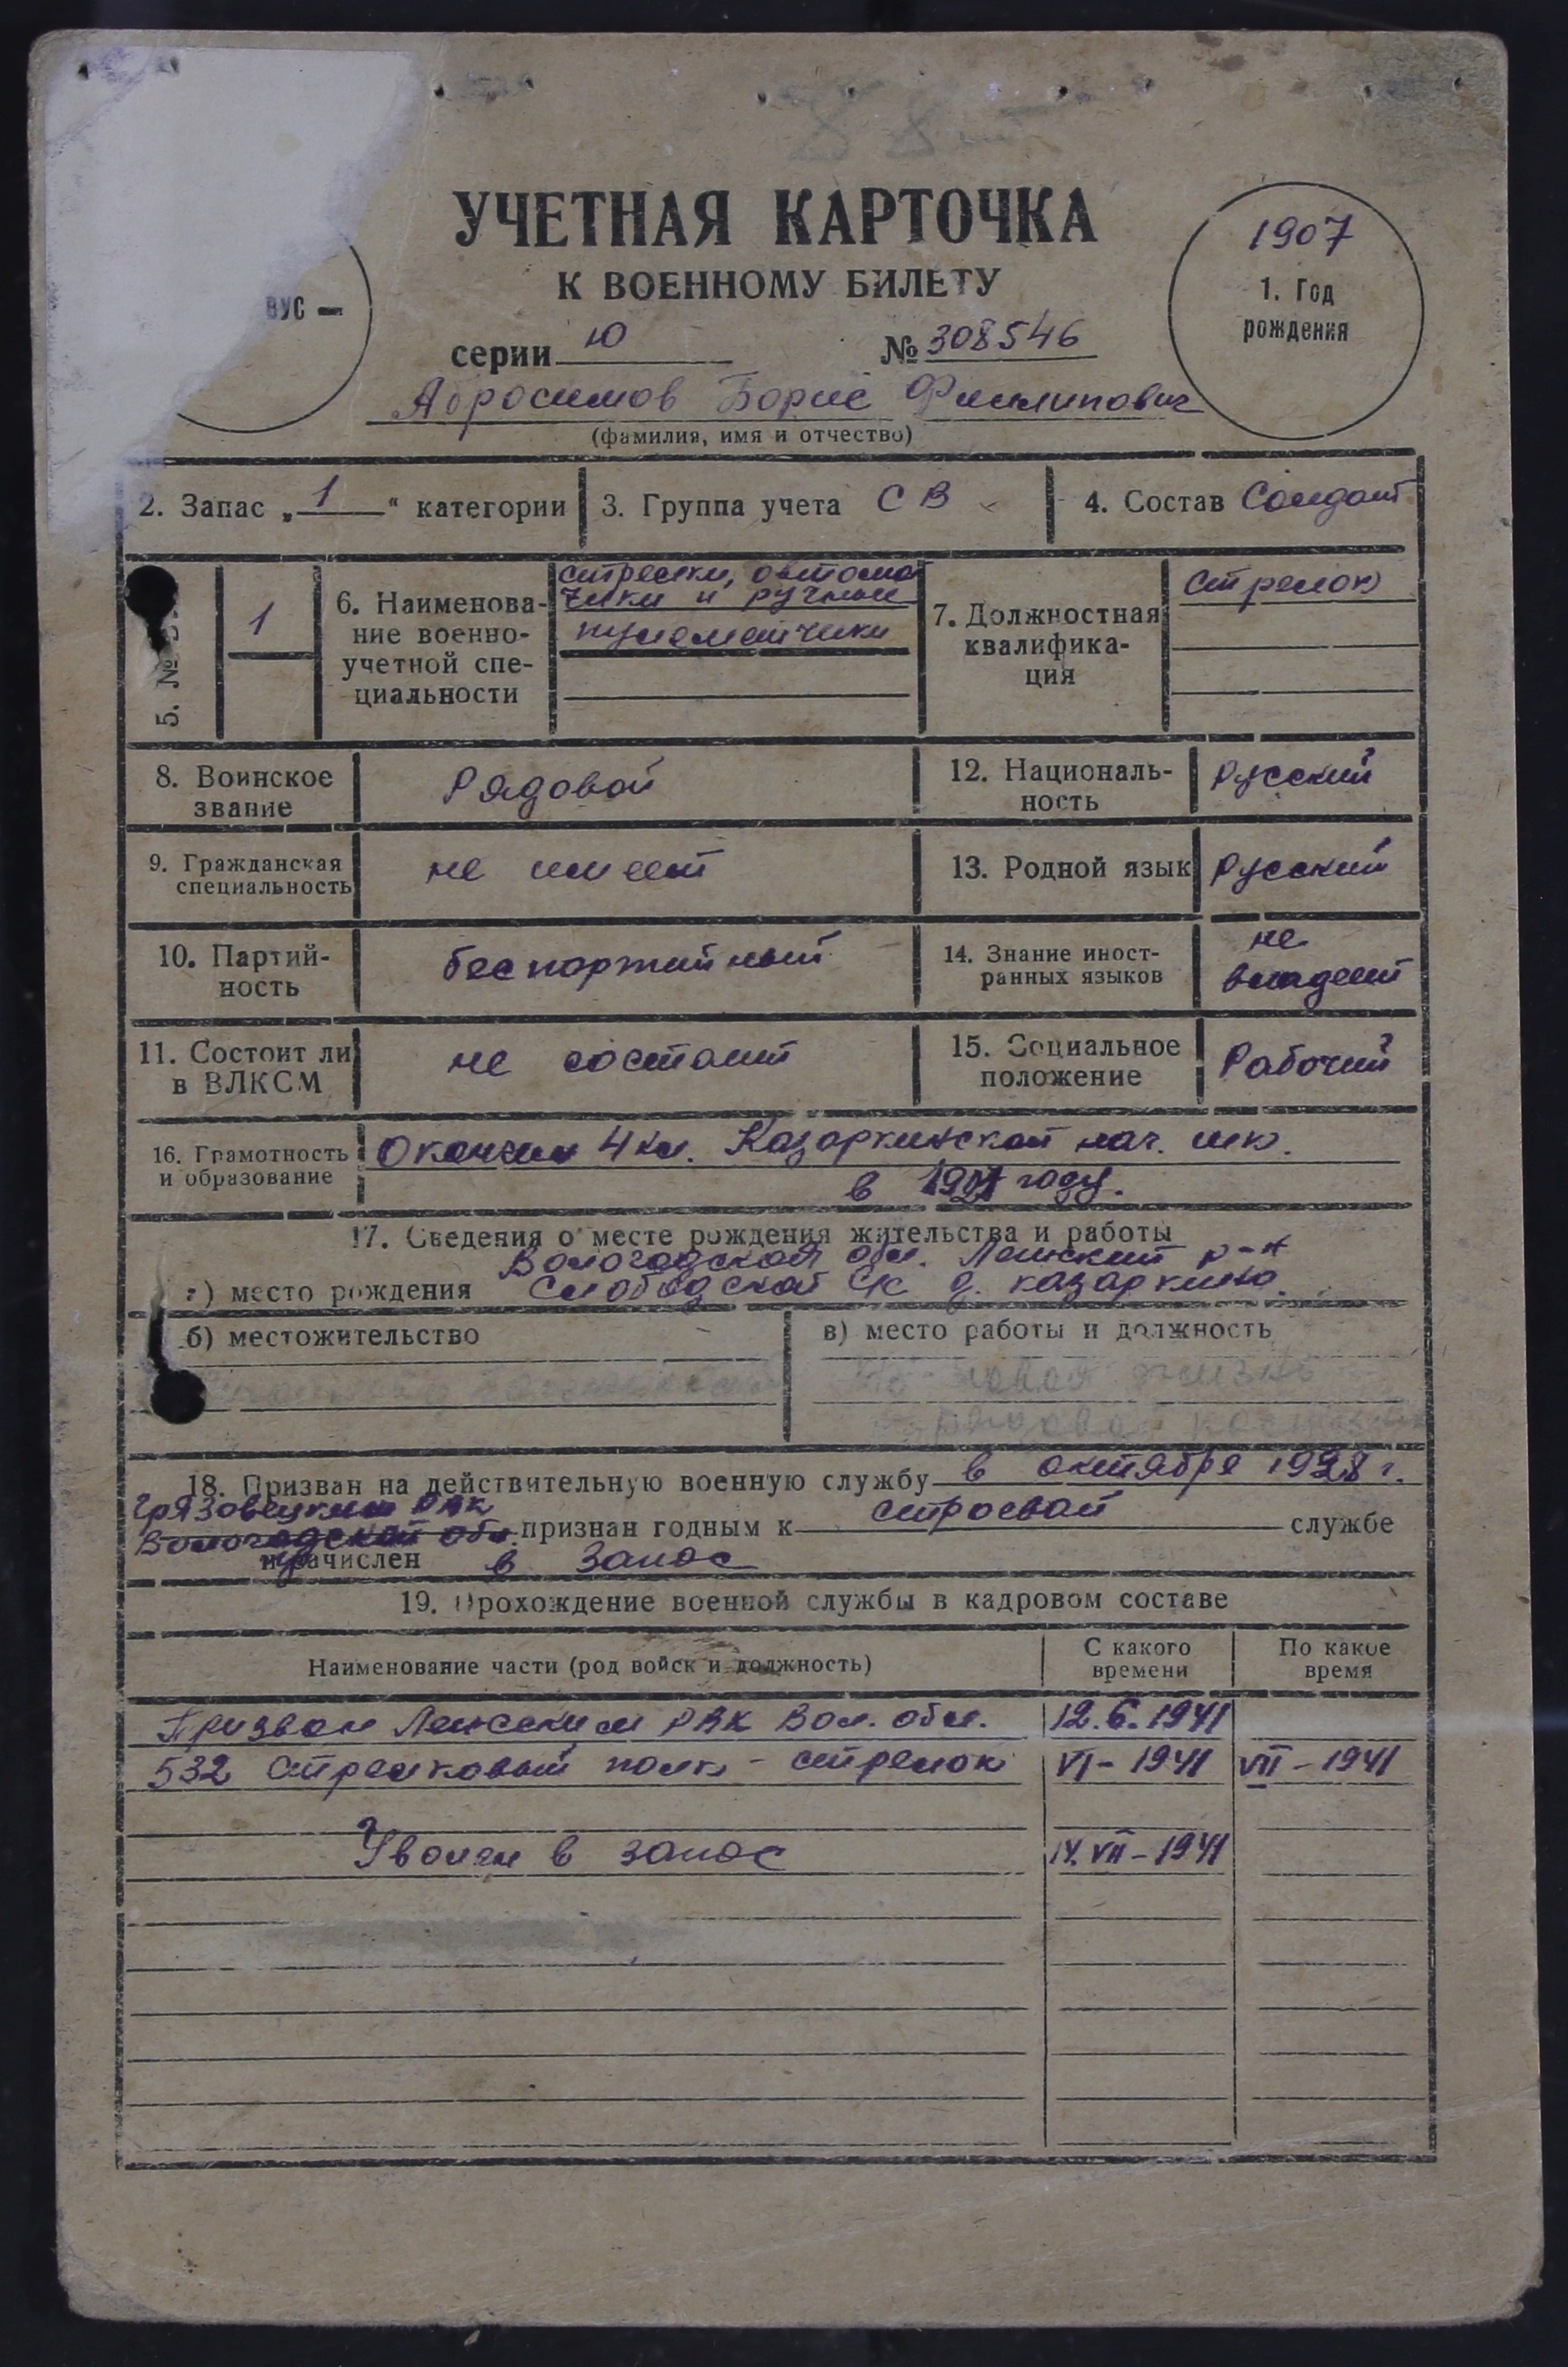 УЧЕТНАЯ КАРТОЧКА
К ВОЕННОМУ БИЛЕТУ
серии Ю № 308546
Абросимов Борис Филипович
(фамилия, имя и отчество)
ВУС —
1907
1. Год
рождения
2. Запас „1“ категории
3. Группа учета СВ
4. Состав Солдат
5. №
1
6. Наименова-
ние военно-
учетной спе-
циальности
стрелки, автомат
чики и ручные
пулеметчики
7. Должностная
квалифика-
ция
стрелок
8. Воинское
звание
Рядовой
12. Националь-
ность
Русский
9. Гражданская
специальность
не имеет
13. Родной язык
Русский
10. Партий-
ность
беспартийный
14. Знание иност-
ранных языков
не
владеет
11. Состоит ли
в ВЛКСМ
не состоит
15. Социальное
положение
Рабочий
16. Грамотность
и образование
Окончил 4 кл. Казаркинской нач. шк.
в году.
17. Сведения о месте рождения жительства и работы
Вологодская обл. Ленский р-н
а) место рождения Слободской с/с д. казаркино.
б) местожительство
в) место работы и должность
18. Призван на действительную военную службу в октябре г.
Грязовецким РВК
Вологодской обл. признан годным к строевой службе
и зачислен в Запас
19. Прохождение военной службы в кадровом составе
Наименование части (род войск и должность)
С какого
времени
По какое
время
Призван Ленским РВК Вол. обл. 12.6.1941
532 Стрелковый полк - стрелок VI - 1941 VII - 1941
Уволен в запас VII - 1941